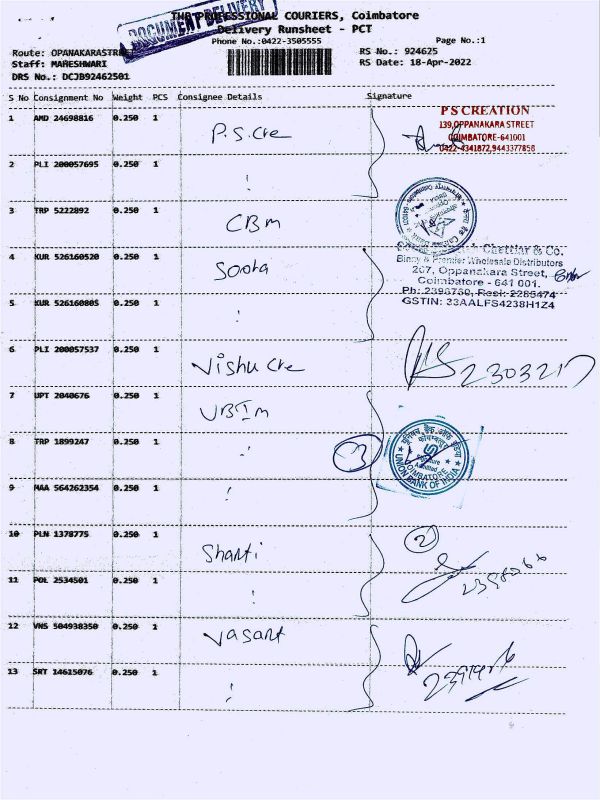 THE PROFESSIONAL COURIERS, Coimbatore
DOCUMENT DELIVERY
Delivery Runsheet - PCT
Phone No.:0422-3505555 Page No.:1
Route: OPANAKARASTREET RS No.: 924625
Staff: MAHESHWARI RS Date: 18-Apr-2022
DRS No.: DCJB92462501
S No Consignment No Weight PCS Consignee Details Signature
1 AMD 24698816 0.250 1 P.S. Cre
P S CREATION
139,OPPANAKARA STREET
COIMBATORE-641001
0422-4341872,9443377858
2 PLI 200057695 0.250 1 "
3 TRP 5222892 0.250 1 CBM
4 KUR 526160520 0.250 1 Sooha
Chettiar & Co.
Binny & Premier Wholesale Distributors
207, Oppanakara Street,
Coimbatore - 641 001.
Ph: 2396750, Resi: 2285474
GSTIN: 33AALFS4238H1Z4
5 KUR 526160805 0.250 1 "
6 PLI 200057537 0.250 1 Vishu Cre 2303217
7 UPT 2040676 0.250 1 UBIM
8 TRP 1899247 0.250 1 " 3
यूनियन बैंक ऑफ इंडिया
COIMBATORE
UNION BANK OF INDIA
9 MAA 564262354 0.250 1 "
10 PLN 1378775 0.250 1 Shanti 2
11 POL 2534501 0.250 1 "
12 VNS 504938350 0.250 1 Vasant
13 SRT 14615076 0.250 1 "